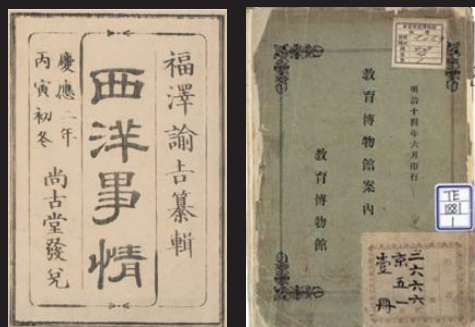 福澤諭吉纂輯
西洋事情
慶應二年
丙寅初冬
尚古堂發兌
明治十四年六月印行
教育博物館案内
教育博物館
TE
1881
1
三六六六
京五一
壹冊